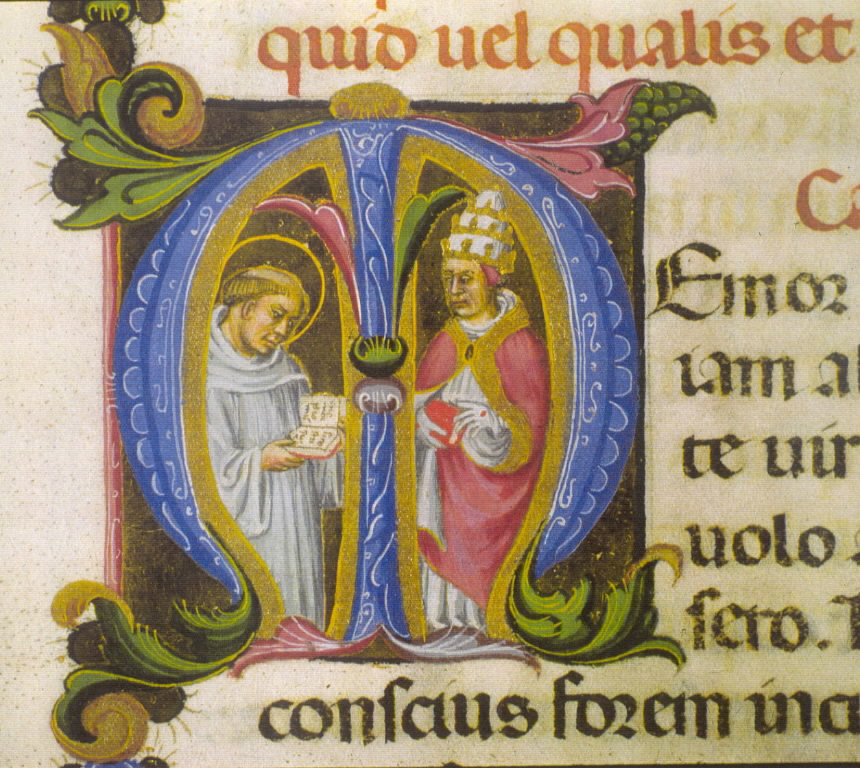 quid uel qualis et
Ca
M Emor
iam al
te uir
uolo
sero.
conscius forem